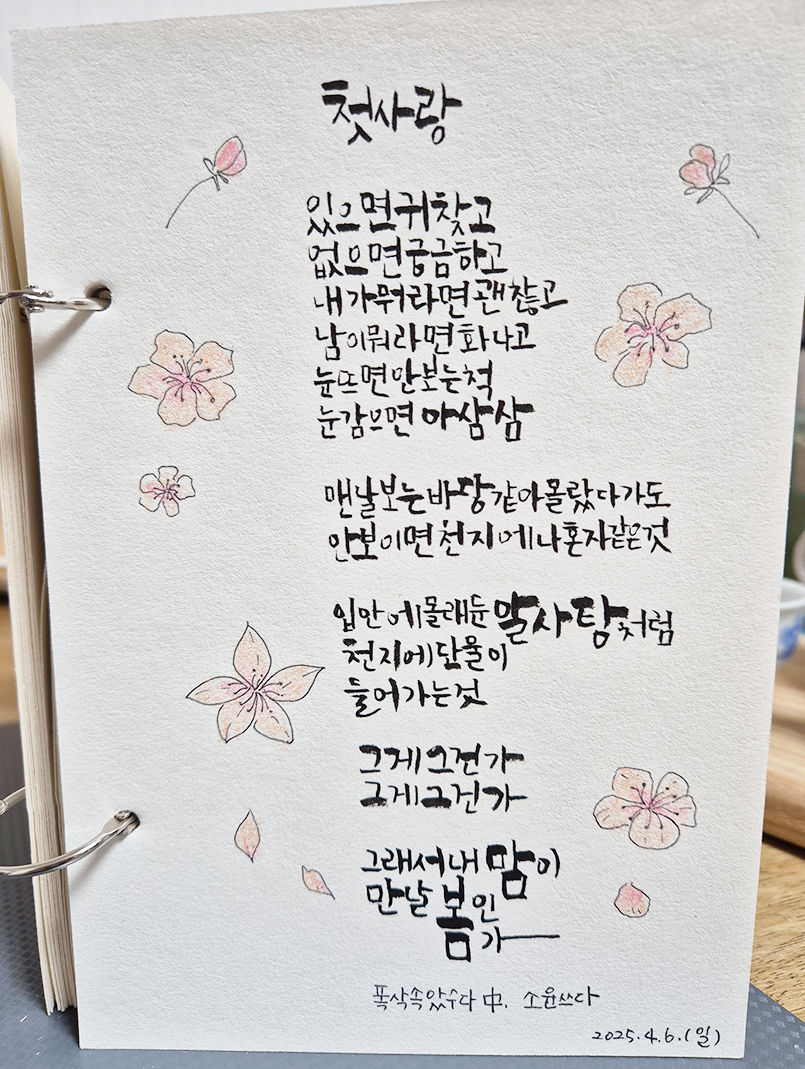 첫사랑
있으면 귀찮고
없으면 궁금하고
내가 뭐라면 괜찮고
남이 뭐라면 화나고
눈뜨면 안보는척
눈감으면 아삼삼
맨날 보는 바당 같아 몰랐다가도
안보이면 천지에 나 혼자 같은 것
입안에 몰래둔 알사탕처럼
천지에 단물이
들어가는 것
그게 그건가
그게 그건가
그래서 내 맘이
만날 봄인
가
폭삭 속았수다 中. 소윤쓰다
2025.4.6.(일)